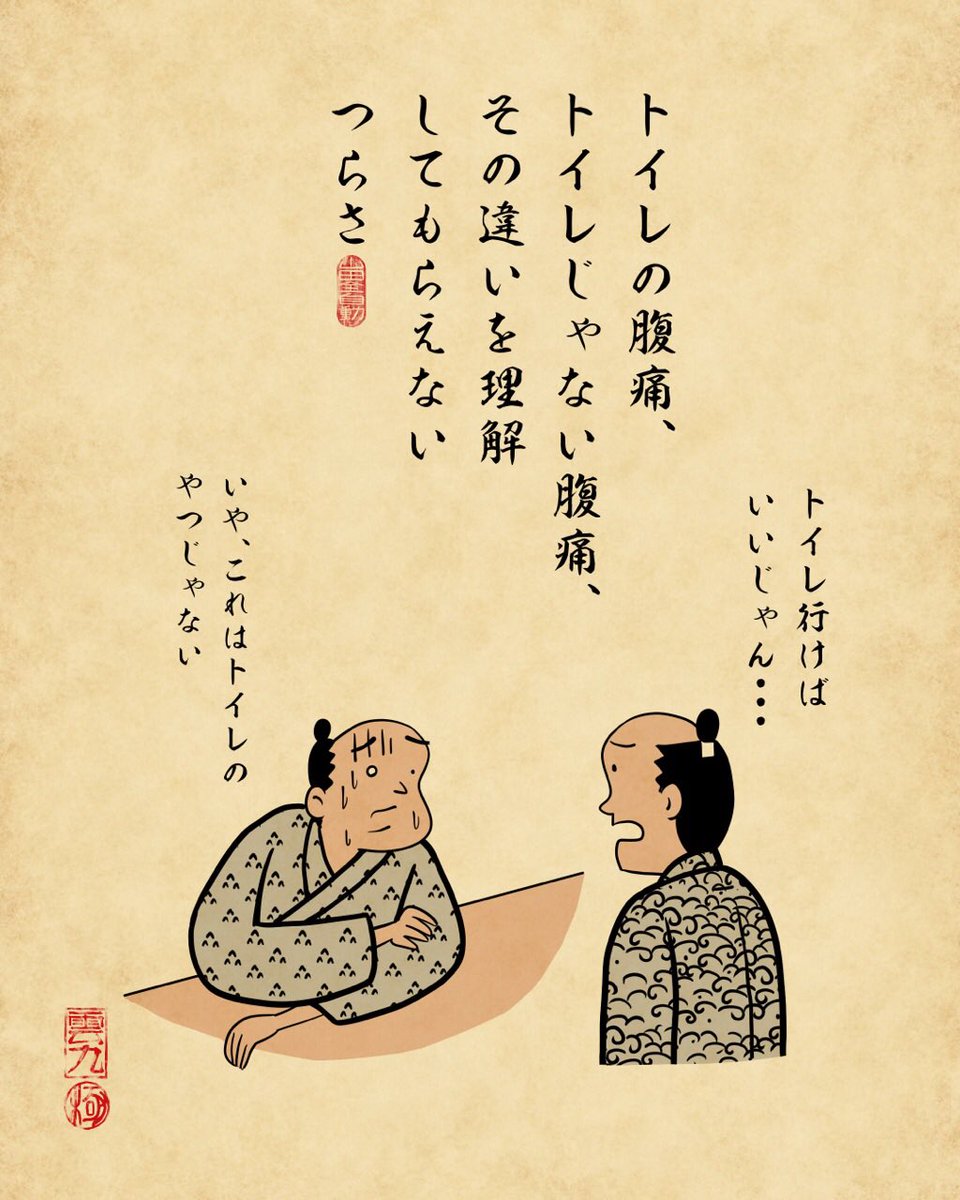 トイレの腹痛、
トイレじゃない腹痛、
その違いを理解
してもらえない
つらさ
トイレ行けば
いいじゃん・・・
いや、これはトイレの
やつじゃない